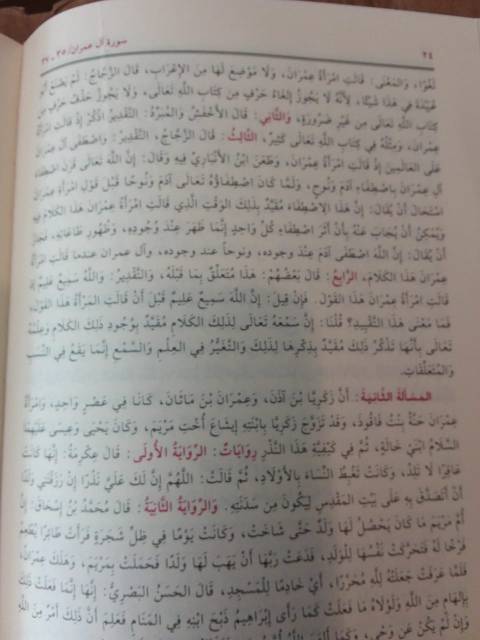 ٢٤ سورة آل عمران/ ٣٥ ـ ٣٧
لغوًا، والمعنى: قالت امرأة عمران، ولا موضع لها من الإعراب، قال الزجاج: لم يصنع أبو
عبيدة في هذا شيئًا، لأنه لا يجوز إلغاء حرف من كتاب الله تعالى، ولا يجوز حذف حرف من
كتاب الله تعالى من غير ضرورة، والثاني: قال الأخفش والمبرد: التقدير اذكر إذ قالت امرأة
عمران، ومثله في كتاب الله تعالى كثير، الثالث: قال الزجاج، التقدير: واصطفى آل عمران
على العالمين إذ قالت امرأة عمران، وطعن ابن الأنباري فيه وقال: إن الله تعالى قرن اصطفاء
آل عمران باصطفاء آدم ونوح، ولما كان اصطفاؤه تعالى آدم ونوحًا قبل قول امرأة عمران
استحال أن يقال: إن هذا الاصطفاء مقيد بذلك الوقت الذي قالت امرأة عمران هذا الكلام فيه
ويمكن أن يجاب عنه بأن أثر اصطفاء كل واحد إنما ظهر عند وجوده، وظهور طاعاته، فجاز
أن يقال: إن الله اصطفى آدم عند وجوده، ونوحاً عند وجوده، وآل عمران عندما قالت امرأة
عمران هذا الكلام، الرابع: قال بعضهم: هذا متعلق بما قبله، والتقدير: والله سميع عليم إذ
قالت امرأة عمران هذا القول. فإن قيل: إن الله سميع عليم قبل أن قالت المرأة هذا القول،
فما معنى هذا التقييد؟ قلنا: إن سمعه تعالى لذلك الكلام مقيد بوجود ذلك الكلام وعلمه
تعالى بأنها تذكر ذلك مقيد بذكرها لذلك والتغير في العلم والسمع إنما يقع في النسب
والمتعلقات.
المسألة الثانية: أن زكريا بن آذن، وعمران بن ماثان، كانا في عصر واحد، وامرأة
عمران حنة بنت فاقوذ، وقد تزوج زكريا بابنته إيشاع أخت مريم، وكان يحيى وعيسى عليهما
السلام ابني خالة، ثم في كيفية هذا النذر روايات: الرواية الأولى: قال عكرمة: إنها كانت
عاقرًا لا تلد، وكانت تغبط النساء بالأولاد، ثم قالت: اللهم إن لك علي نذرًا إن رزقتني ولدًا
أن أتصدق به على بيت المقدس ليكون من سدنته. والرواية الثانية: قال محمد بن إسحاق: إن
أم مريم ما كان يحصل لها ولد حتى شاخت، وكانت يومًا في ظل شجرة فرأت طائرًا يطعم
فرخًا له فتحركت نفسها للولد، فدعت ربها أن يهب لها ولدًا فحملت بمريم، وهلك عمران،
فلما عرفت جعلته لله محررًا، أي خادمًا للمسجد، قال الحسن البصري: إنها إنما فعلت ذلك
بإلهام من الله ولولاه ما فعلت كما رأى إبراهيم ذبح ابنه في المنام فعلم أن ذلك أمر من الله
وإن لم يكن عن وحي